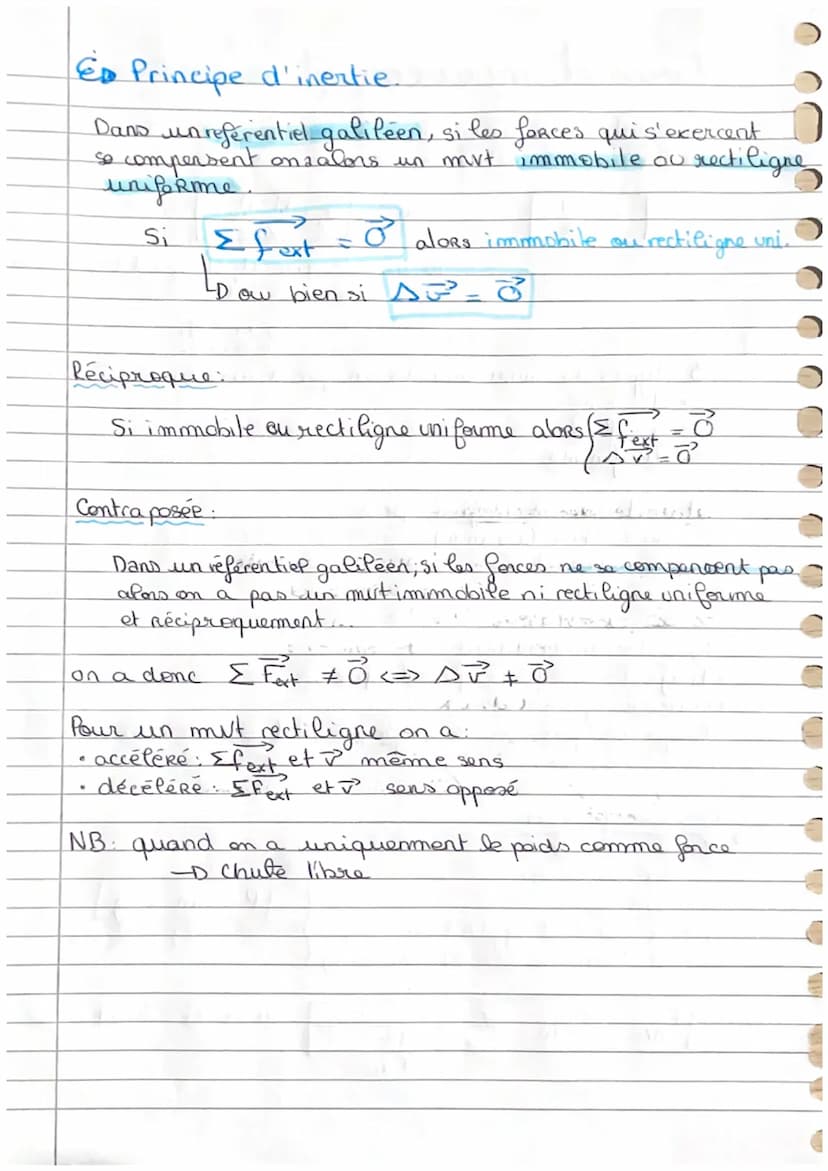 Principe d'inertie.
Dans un referentiel galiléen, si les forces qui s'exercent
se compensent on a alors un mvt immobile ou rectiligne
uniforme.
Si Σ f⃗ext = 0⃗ alors immobile ou rectiligne uni.
ou bien si Δv⃗ = 0⃗
Réciproque:
Si immobile ou rectiligne uniforme alors { Σ f⃗ext = 0⃗
Δv⃗ = 0⃗
Contraposée :
Dans un référentiel galiléen, si les forces ne se compensent pas
alors on a pas un mvt immobile ni rectiligne uniforme
et réciproquement...
on a donc Σ F⃗ext ≠ 0⃗ <=> Δv⃗ ≠ 0⃗
Pour un mvt rectiligne on a:
• accéléré : Σf⃗ext et v⃗ même sens
• décéléré : ΣF⃗ext et v⃗ sens opposé
NB: quand on a uniquement le poids comme force
→ Chute libre